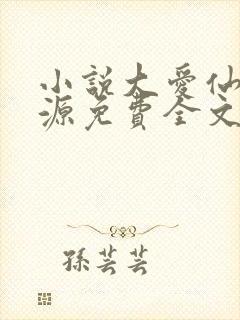 小説大愛仙
源免費全文
孫芸芸